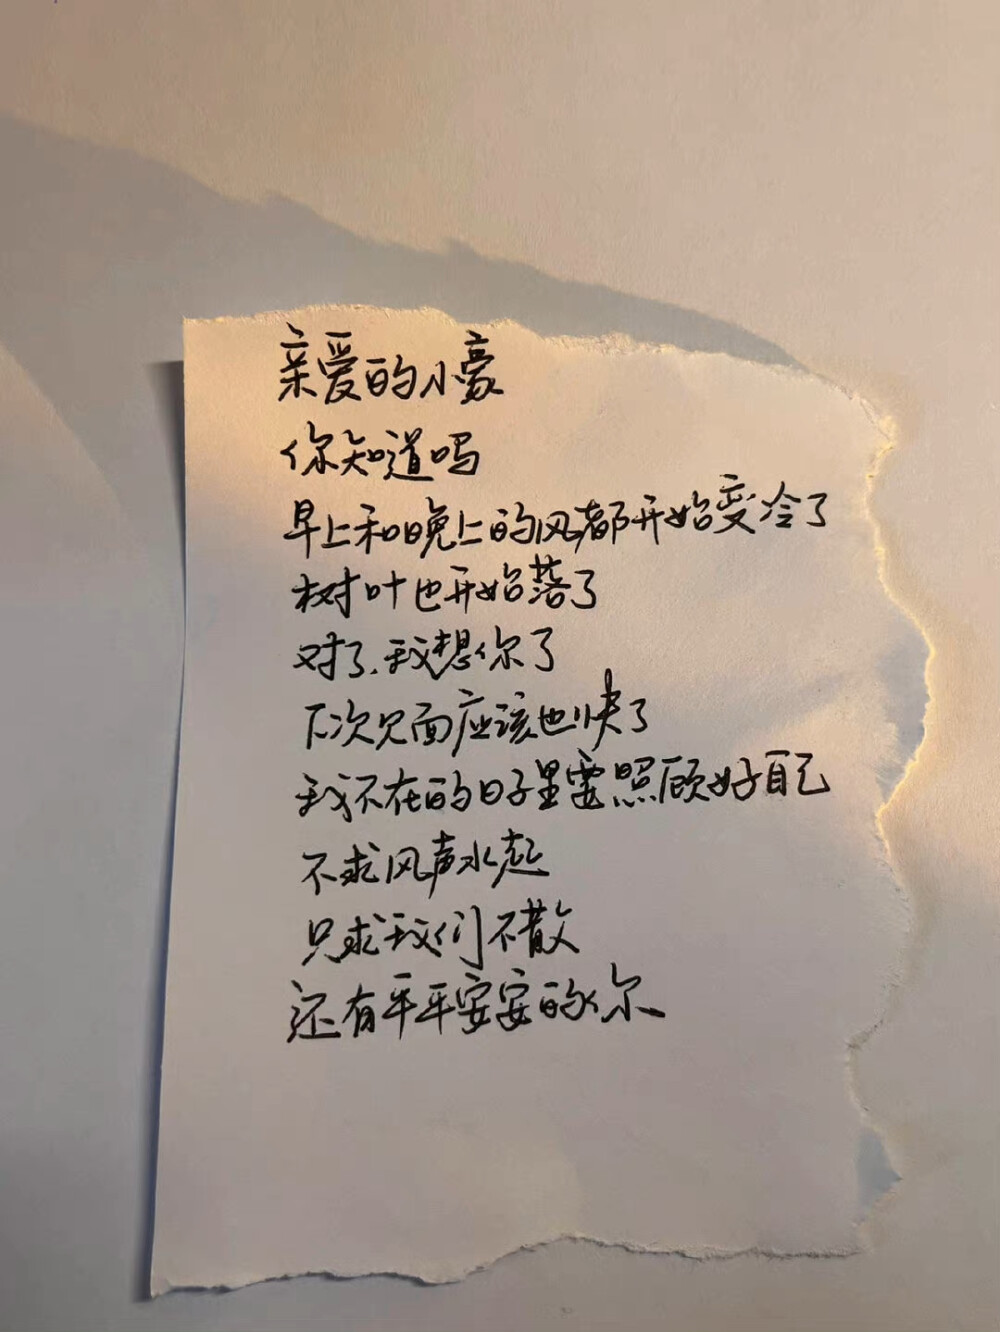 亲爱的小豪
你知道吗
早上和晚上的风都开始变冷了
树叶也开始落了
对了,我想你了
下次见面应该也快了
我不在的日子里要照顾好自己
不求风声水起
只求我们不散
还有平平安安的你